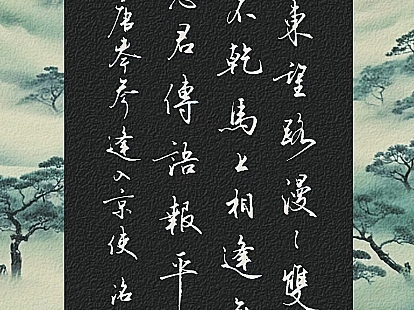 東望路漫〻雙
不乾馬上相逢
君傳語報平
唐岑參逢入京使